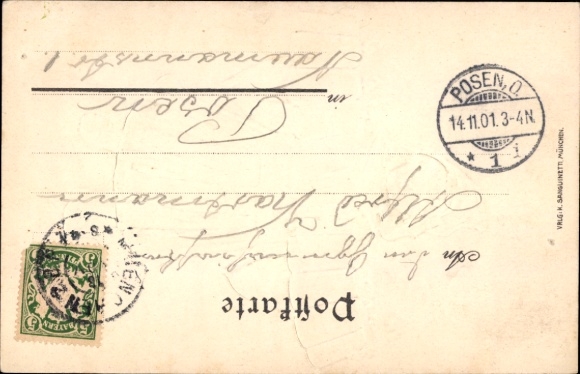 Postkarte
An den
Alfred Hartmann
in Posen
Naumannstr. 1
POSEN.O.
14.11.01.3-4N.
* 1 i
BAYERN
5
VRLG. K. SANGUINETTI, MÜNCHEN.